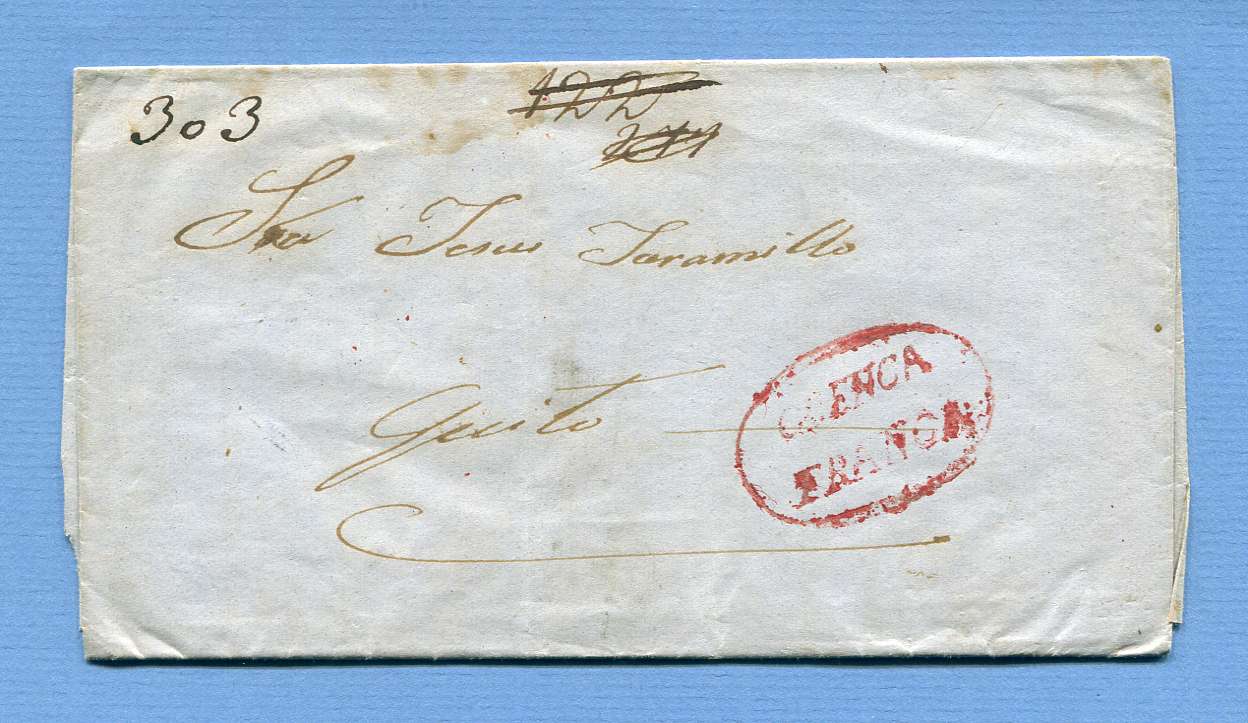 303
122
Sra Jesus Jaramillo
Quito
CUENCA
FRANCA